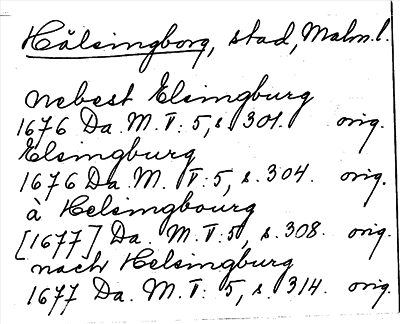 Hälsingborg, stad, Malm. l.
nebest Elsingburg
1676 Da. M. V: 5, s. 301. orig.
Elsingburg
1676 Da. M. V: 5, s. 304. orig.
à Helsingbourg
[1677] Da. M. V: 5, s. 308. orig.
nach Helsingburg
1677 Da. M. V: 5, s. 314. orig.